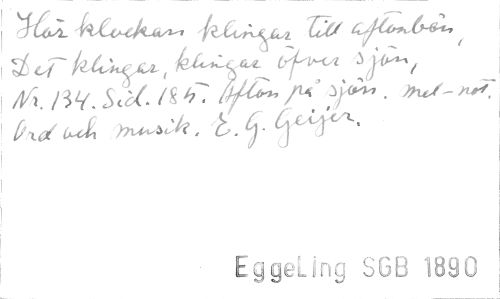 Hör klockan klingar till aftonbön,
Det klingar, klingar öfver sjön,
Nr. 134. Sid. 185. Afton på sjön. mel-not.
Ord och musik. E. G. Geijer.
EggeLing SGB 1890